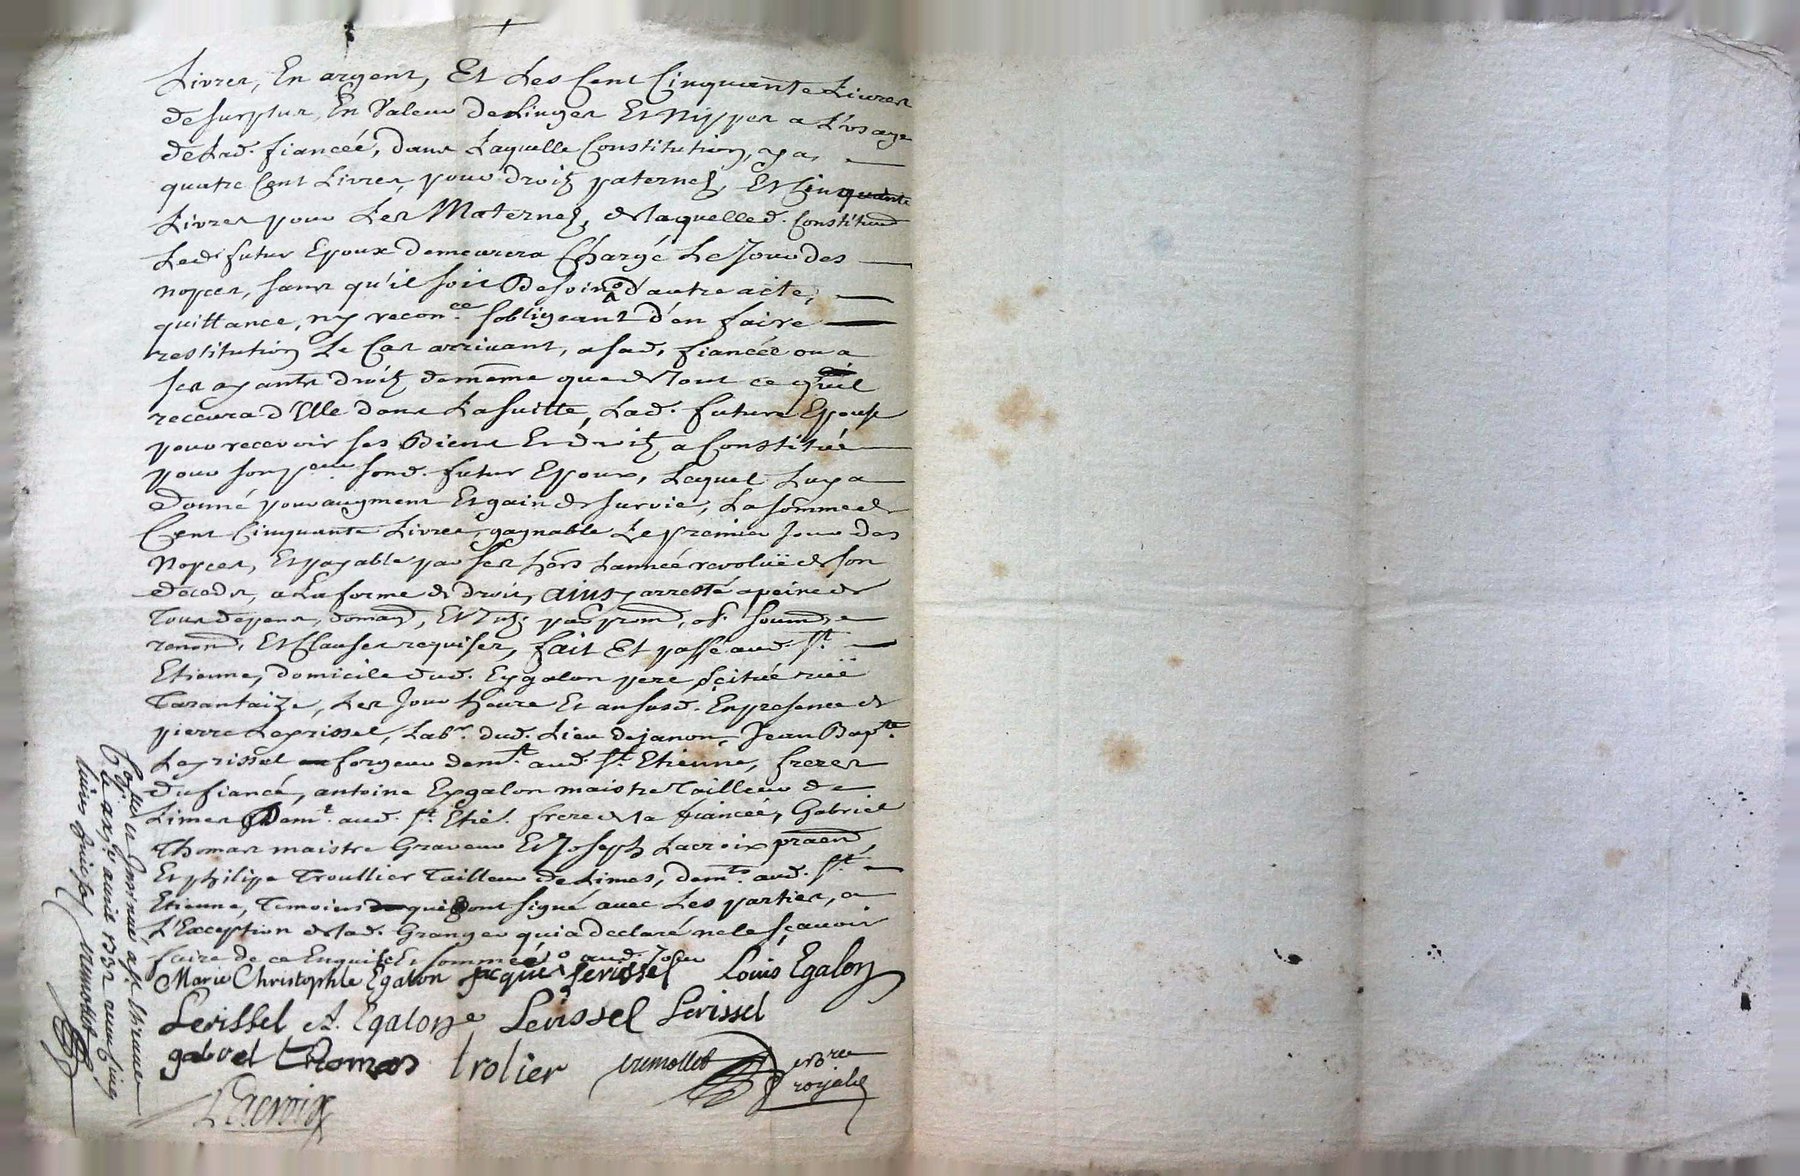 Livres, En argent, Et Les Cent Cinquante Livres
de surplus, En Valeur de Linges Et Nippes a L'usage
de Lad. fiancée, dans Laquelle Constitution, y a,
quatre Cent Livres, pour droitz paternelz, Et Cinquante
Livres pour Les Maternelz, de laquelle d. Constitu͠on
Led. futur Epoux demeurera Chargé Le Jour des
nopces, sans qu'il soit Besoin d'autre acte,
quittance, ny recon.ce s'obligeant d'en faire
restitution Le Cas arrivant, a sad. fiancée ou a
ses ayants droitz, de même que de Tout ce qu'il
recevra d'Elle dans La suitte, Lad. future Epouse
pour recevoir ses Biens Et droitz, a Constitué
pour son p.eur sond. futur Epoux, Lequel Luy a
donné pour augment Et gain de survie, La somme de
Cent Cinquante Livres, gagnable Le premier Jour des
Nopces, Et payable par ses hers L'année revoluë de son
decedz, a La forme de droit, ainsy arresté a peine de
Tous depens, domag, Et Intz, par prom, obl. soumis,
renon, Et Clauses requises, fait Et passé aud. St.
Etienne, domicile dud. Eygalon pere scitué ruë
Tarantaize, Les Jour heure Et an susd. En presence de
pierre Leyrissel, Lab.r dud. Lieu de janon, Jean Bapt.te
Leyrissel forgeur dem.t aud. St. Etienne, freres
du fiancé, antoine Eygalon maistre Tailleur de
Limes dem.t aud. St. Etie. frere de la fiancée, Gabriel
Thomas maistre Graveur Et Joseph Lacroix praēn,
Et philipe Troullier Tailleur de Limes, dem.ts aud. St.
Etienne, Temoins qui ont signé avec Les parties, a
L'Exception de lad. Granger qui a declaré ne le sçavoir
faire de ce Enquise Et sommée
Marie Christophle Egalon jacque Lerissel Louis Egalon
Lerissel A. Egalon Lerissel Lerissel
gabriel thomas trolier tremollet no.re
royal
Lacroix
Con.llé et Insinué a St. Etienne
le onz.e avril 1732 receu cinq
livres
tremollet